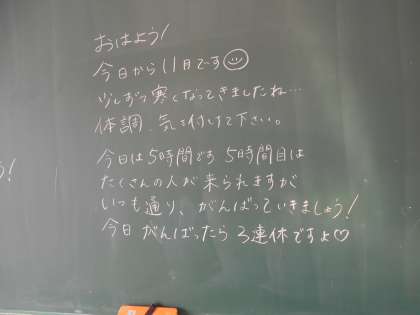 おはよう!
今日から11月です
少しずつ寒くなってきましたね…
体調、気を付けて下さい。
今日は5時間です 5時間目は
たくさんの人が来られますが
いつも通り、がんばっていきましょう!
う!
今日 がんばったら 3連休ですよ♡